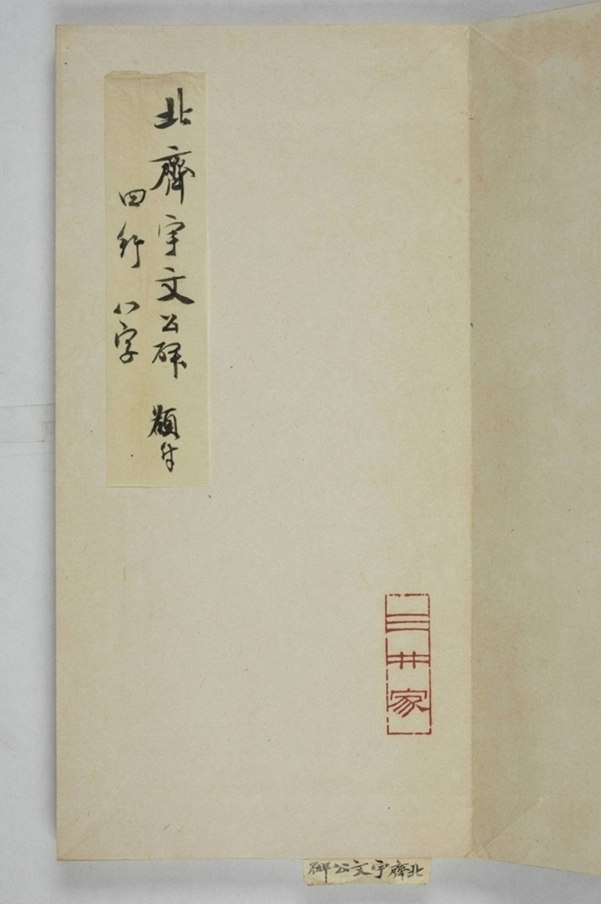 北齊宇文公碑 額付
四行 八字
三井家
北齊宇文公碑